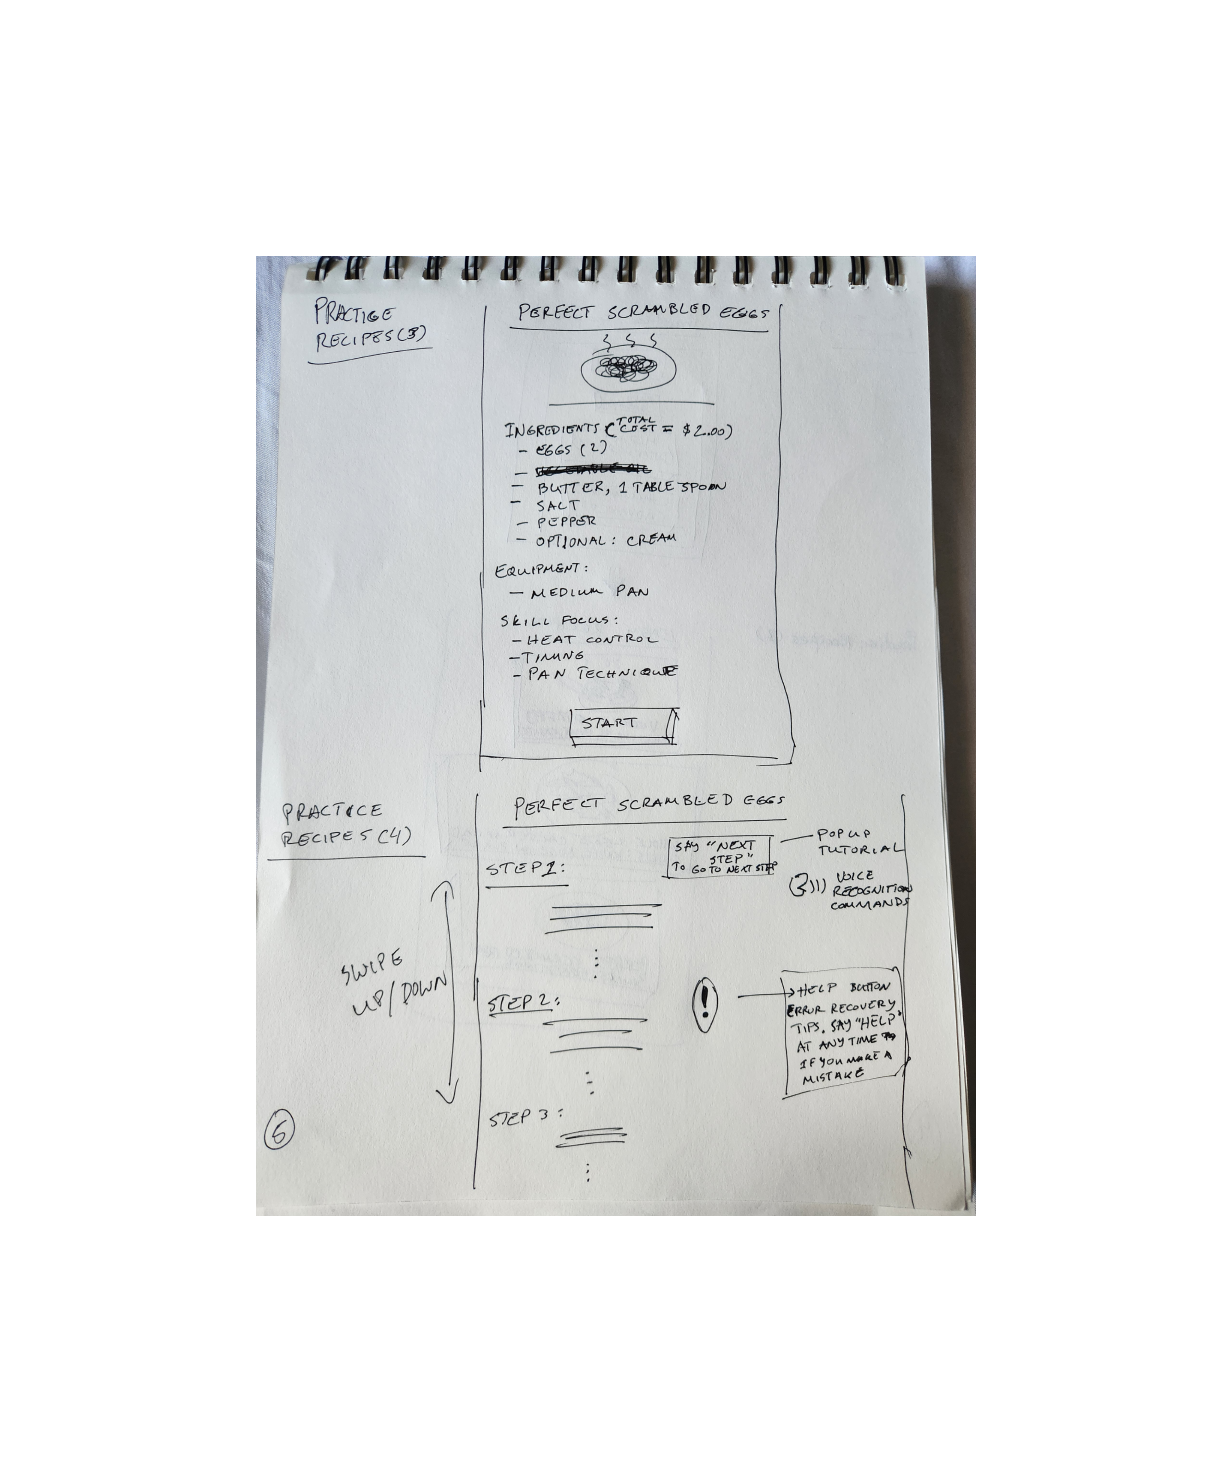 PRACTICE
RECIPES (3)
PERFECT SCRAMBLED EGGS
INGREDIENTS (TOTAL COST = $2.00)
- EGGS (2)
-
- BUTTER, 1 TABLE SPOON
- SALT
- PEPPER
- OPTIONAL: CREAM
EQUIPMENT:
- MEDIUM PAN
SKILL FOCUS:
- HEAT CONTROL
- TIMING
- PAN TECHNIQUE
START
PRACTICE
RECIPES (4)
PERFECT SCRAMBLED EGGS
SAY "NEXT
STEP"
TO GO TO NEXT STEP
POP UP
TUTORIAL
VOICE
RECOGNITION
COMMANDS
STEP 1:
SWIPE
UP/DOWN
STEP 2:
!
HELP BUTTON
ERROR RECOVERY
TIPS. SAY "HELP"
AT ANY TIME
IF YOU MAKE A
MISTAKE
STEP 3:
6